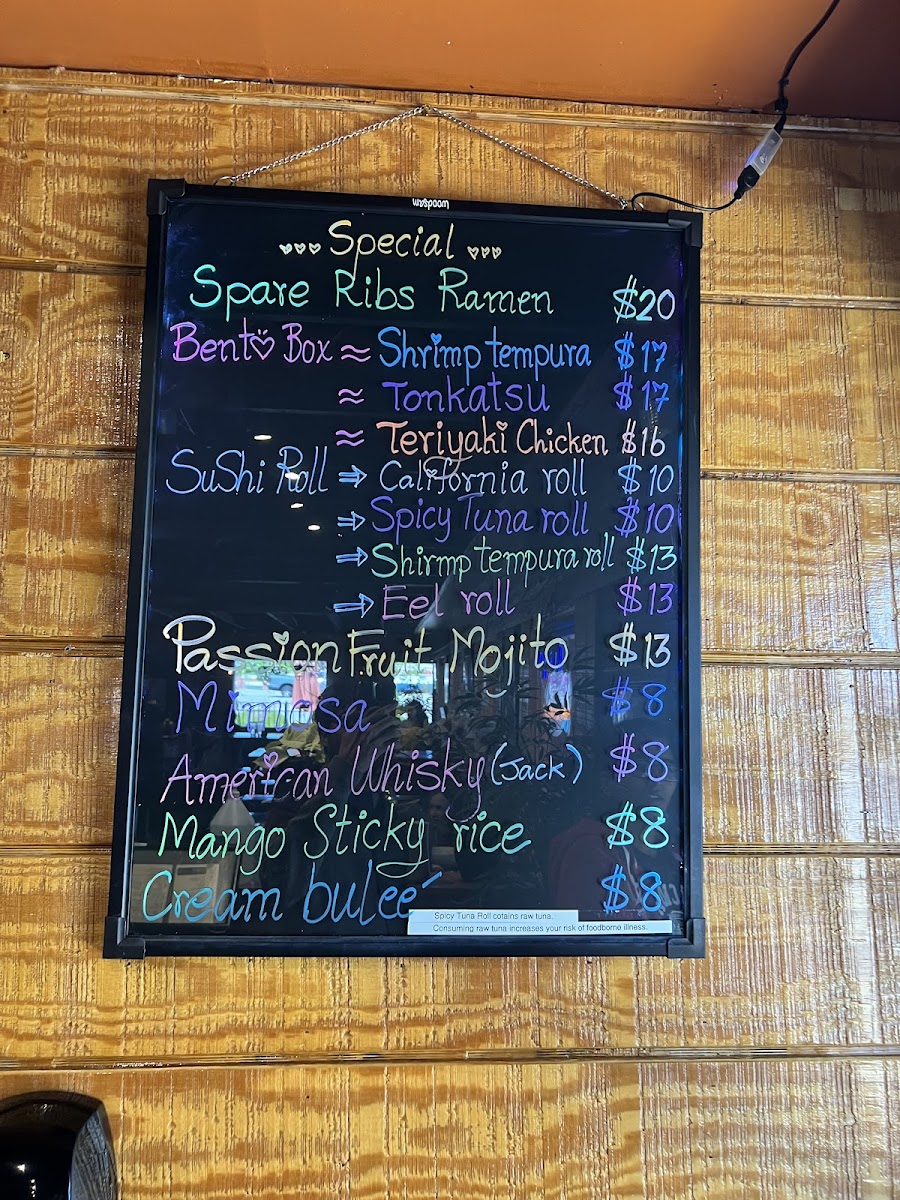 woodsam
Special
Spare Ribs Ramen $20
Bento Box ≈ Shrimp tempura $17
≈ Tonkatsu $17
≈ Teriyaki Chicken $16
SuShi Roll ⇒ California roll $10
⇒ Spicy Tuna roll $10
⇒ Shirmp tempura roll $13
⇒ Eel roll $13
Passion Fruit Mojito $13
Mimosa $8
American Whisky (Jack) $8
Mango Sticky rice $8
Cream buleé $8
Spicy Tuna Roll cotains raw tuna.
Consuming raw tuna increases your risk of foodborne illness.